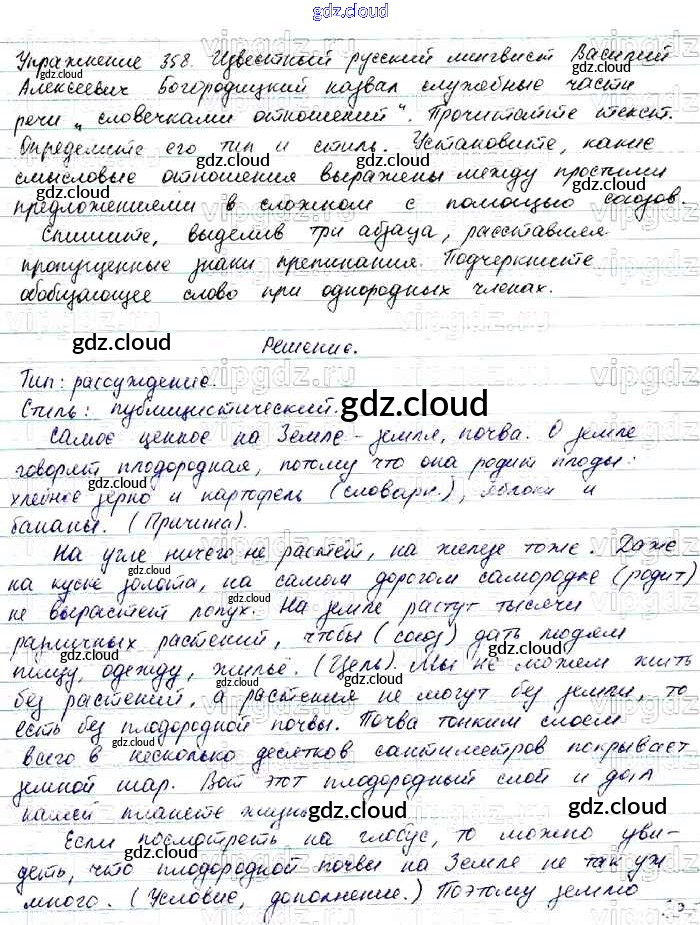 gdz.cloud
Упражнение 358. Известный русский лингвист Василий
Алексеевич Богородицкий назвал служебные части
речи „словечками отношений“. Прочитайте текст.
Определите его тип и стиль. Установите, какие
смысловые отношения выражены между простыми
предложениями в сложном с помощью союзов.
Спишите, выделив три абзаца, расставляя
пропущенные знаки препинания. Подчеркните
обобщающее слово при однородных членах.
gdz.cloud
Решение.
Тип: рассуждение.
Стиль: публицистический.
gdz.cloud
Самое ценное на Земле - земля, почва. О земле
говорят плодородная, потому что она родит плоды:
хлебное зерно и картофель (словарн.), яблоки и
бананы. (Причина).
На угле ничего не растёт, на железе тоже. Даже
на куске золота, на самом дорогом самородке (родит)
не вырастет лопух. На земле растут тысячи
различных растений, чтобы (союз) дать людям
пищу, одежду, жильё. (Цель). Мы не можем жить
без растений, а растения не могут без земли, то
есть без плодородной почвы. Почва тонким слоем
всего в несколько десятков сантиметров покрывает
земной шар. Вот этот плодородный слой и дал
нашей планете жизнь
gdz.cloud
Если посмотреть на глобус, то можно уви-
деть, что плодородной почвы на Земле не так уж
много. (Условие, дополнение.) Поэтому землю